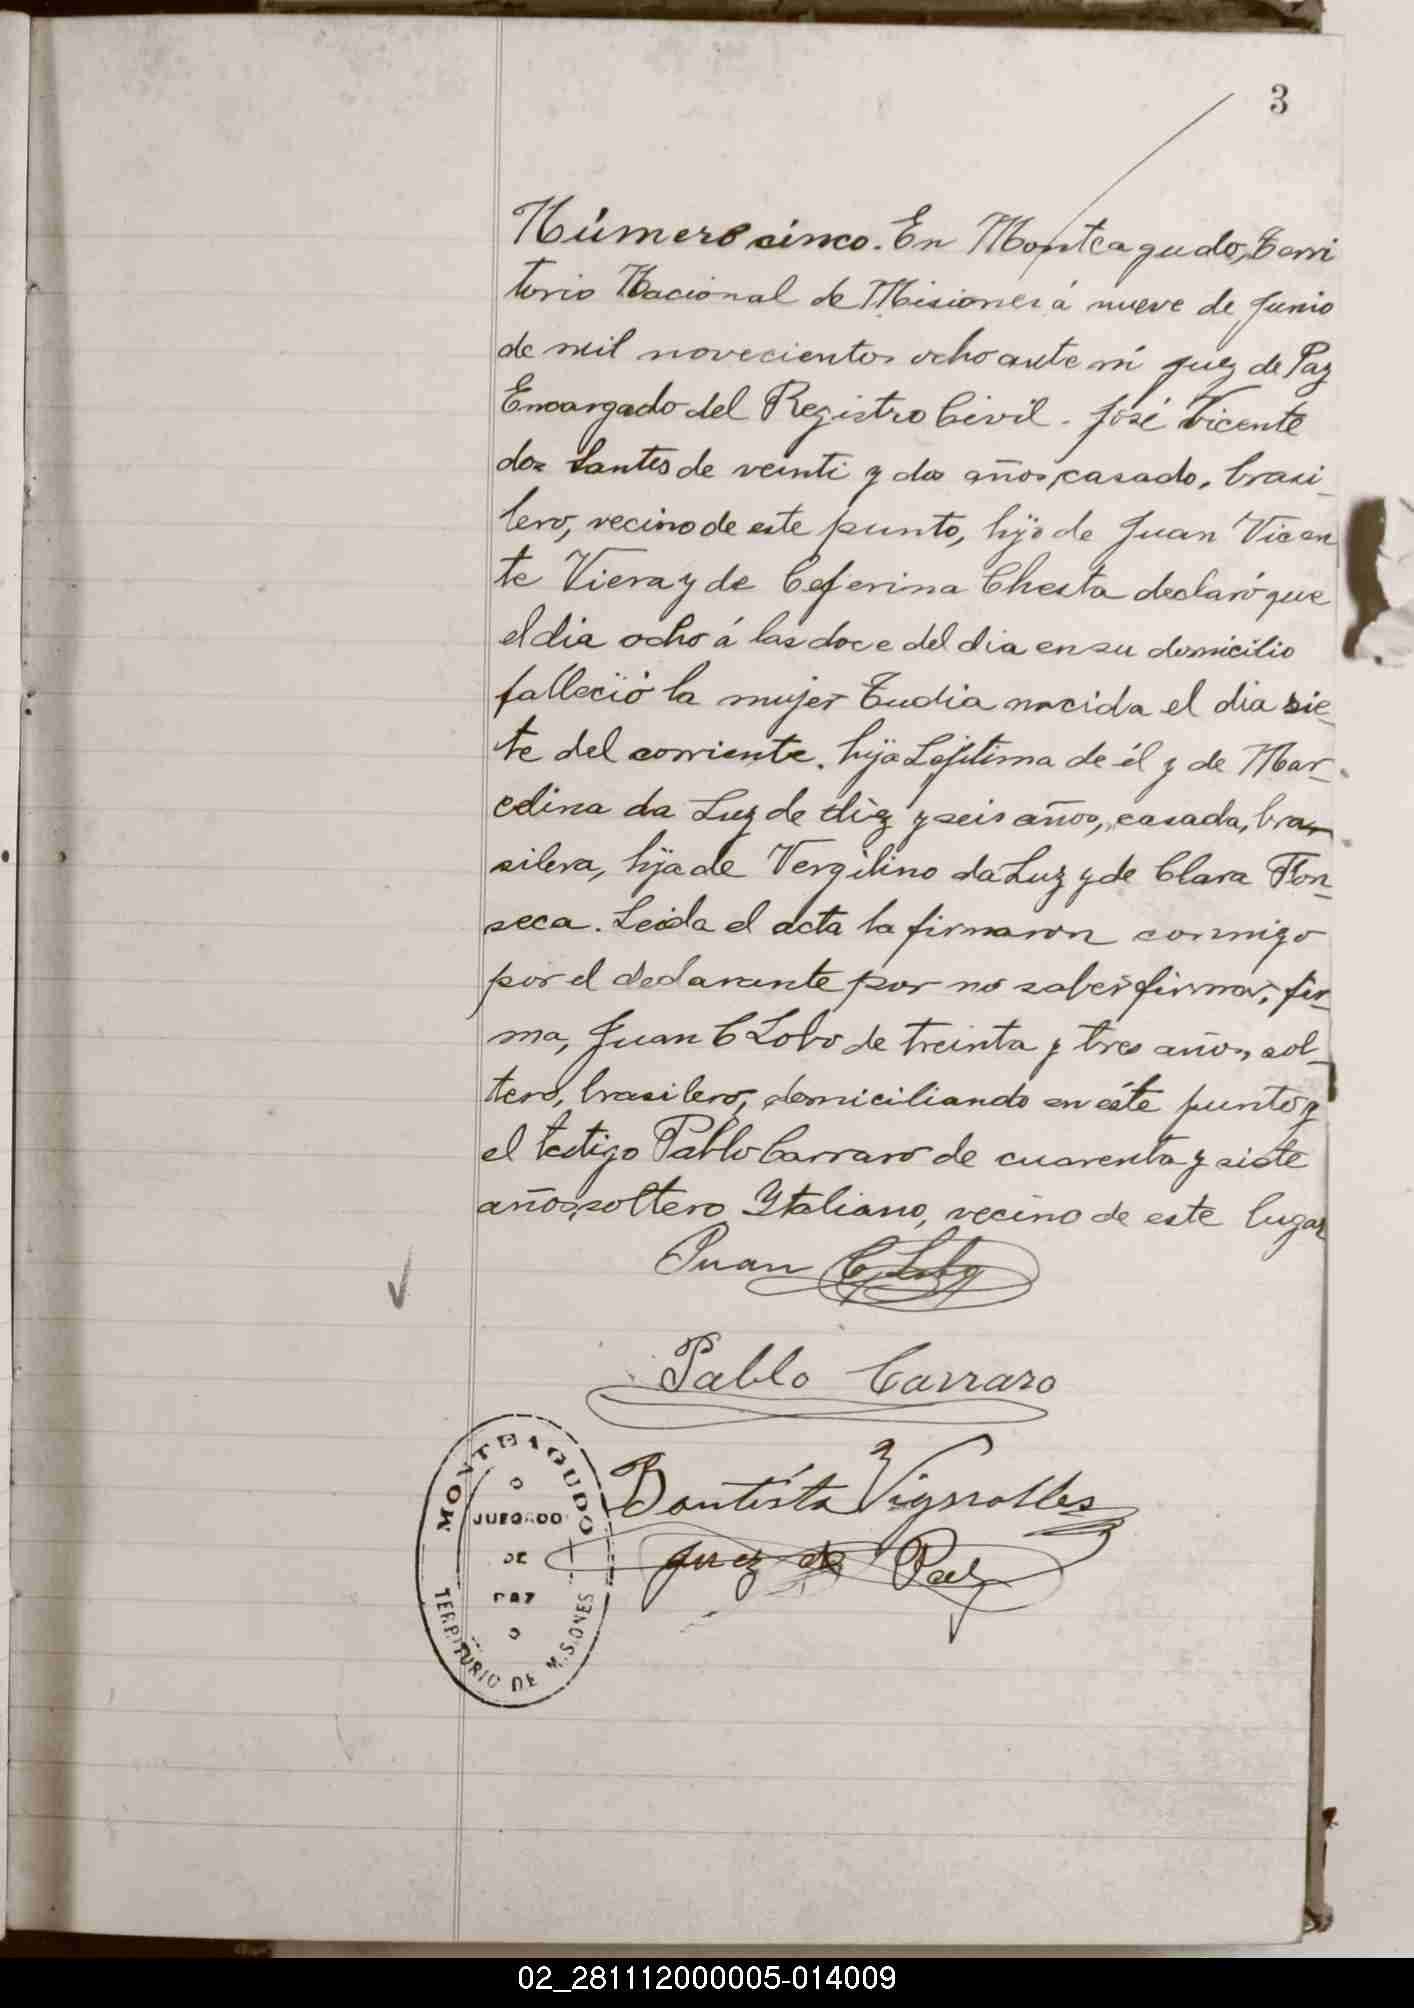 3
Número cinco. En Monteagudo, Terri
torio Nacional de Misiones á nueve de Junio
de mil novecientos ocho ante mi Juez de Paz
Encargado del Registro Civil. José Vicente
dos Santos de veinti y dos años, casado, brasi-
lero, vecino de este punto, hijo de Juan Vicen
te Viera y de Ceferina Chesta declaró que
el dia ocho á las doce del dia en su domicilio
falleció la mujer Tudia nacida el dia sie-
te del corriente. hija Lejitima de él y de Mar-
celina da Luz de diez y seis años, casada, bra-
silera, hija de Vergilino da Luz y de Clara Fon-
seca. Leida el acta la firmaron conmigo
por el declarante por no saber firmar, fir-
ma, Juan C Lobo de treinta y tres años, sol-
tero, brasilero, domiciliando en éste punto y
el testigo Pablo Carraro de cuarenta y siete
años, soltero Ytaliano, vecino de este lugar
Juan C Lobo
Pablo Carraro
Bautista Vignolles
Juez de Paz
MONTEAGUDO
JUZGADO
DE
PAZ
TERRITORIO DE MISIONES
02_281112000005-014009